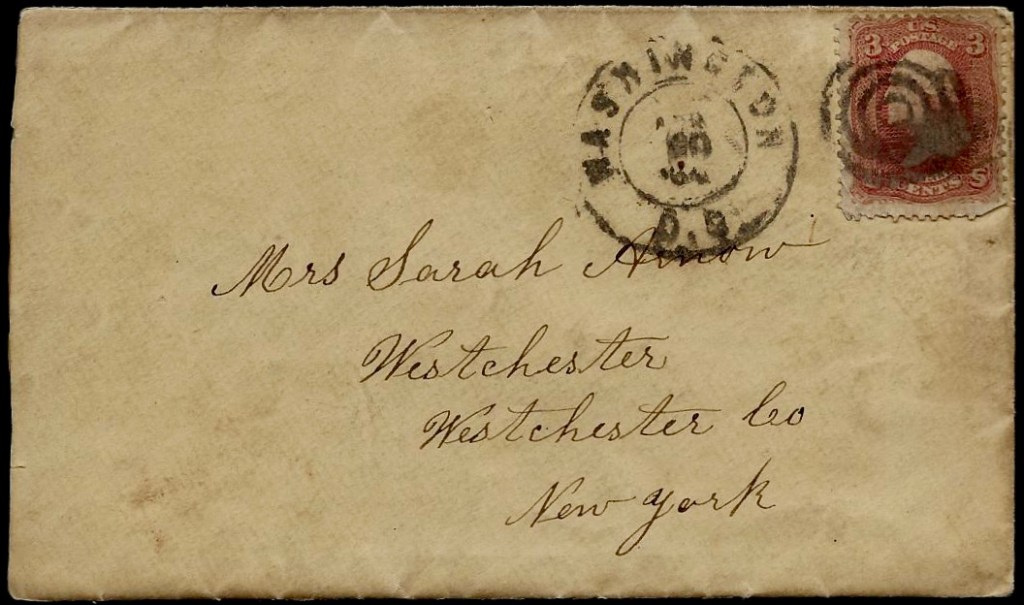 WASHINGTON
D.C.
U.S.
POSTAGE
3 3
CENTS
Mrs Sarah Arnow
Westchester
Westchester Co
New York